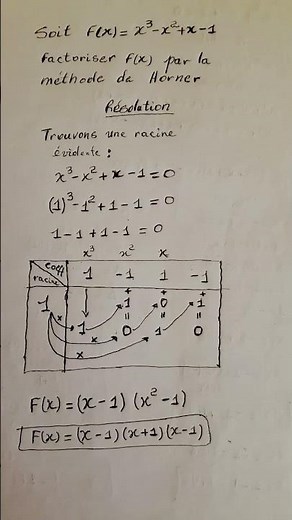 Soit F(x) = x³-x²+x-1
Factoriser F(x) par la
méthode de Horner
Résolution
Trouvons une racine
évidente :
x³-x²+x-1=0
(1)³-1²+1-1=0
1-1+1-1=0
x³ x² x
coeff 1 -1 1 -1
racine
+ + +
1 1 0 1
= = =
x 1 0 1 0
x
x
F(x) = (x-1) (x²-1)
F(x) = (x-1)(x+1)(x-1)